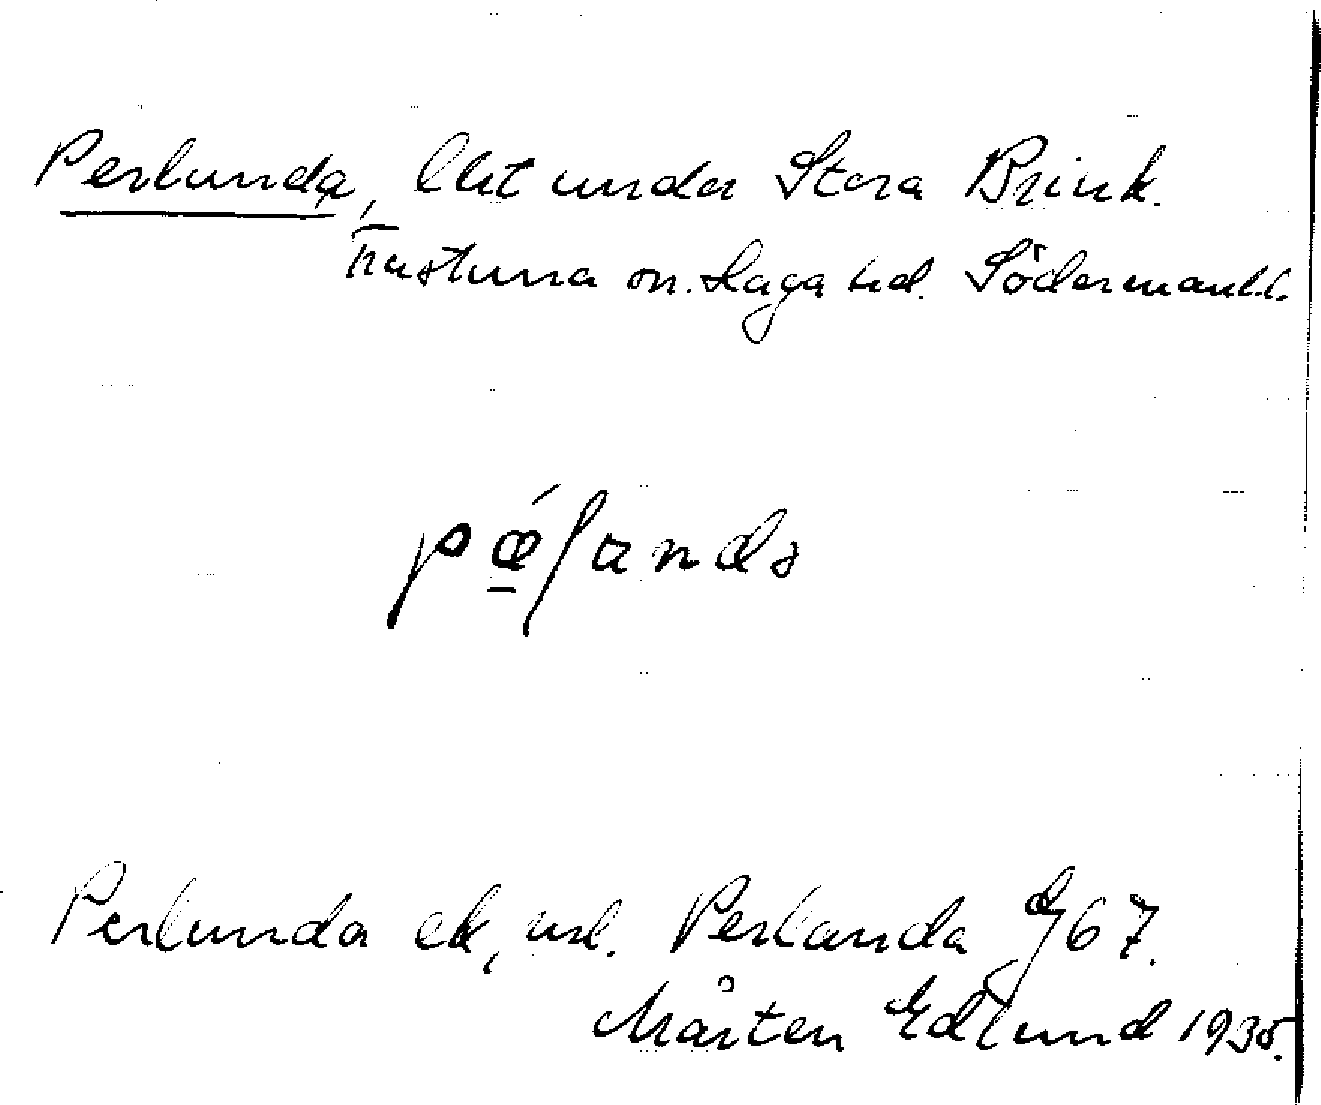 Perlunda, lht under Stora Brink.
Frustuna sn. Daga hd. Södermanl.
pǽlunda
Perlunda ek, usl. Perlanda J67.
Mårten Edlund 1935.